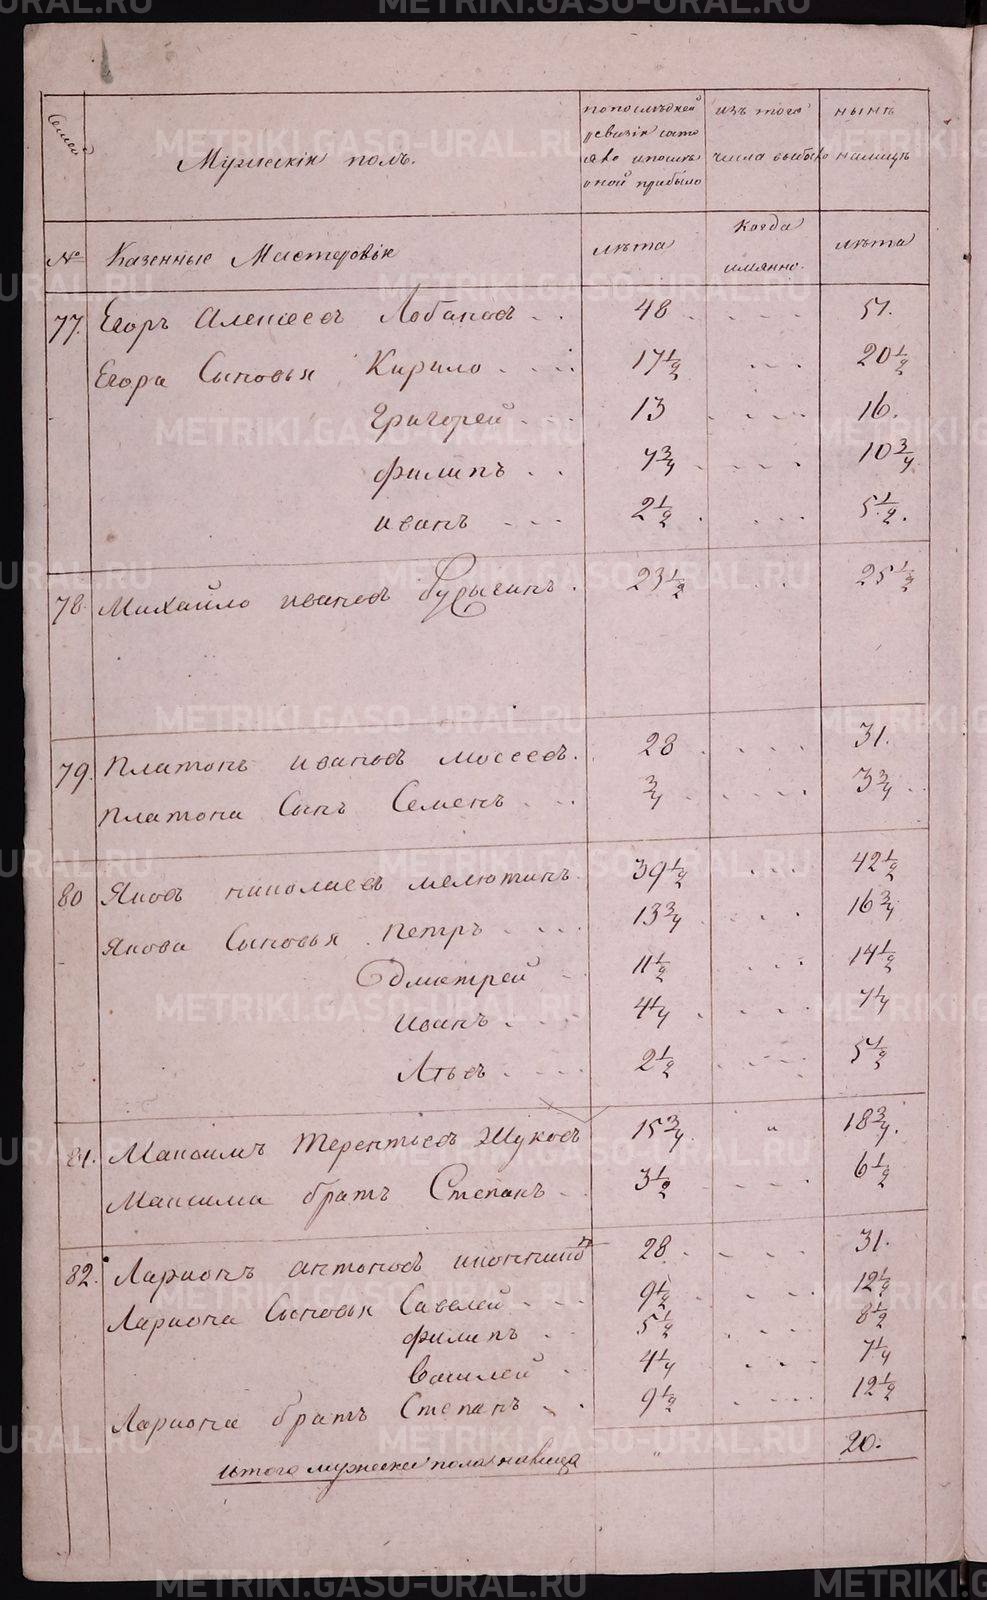 Семей
Мужескiй полъ.
по послѣдней ревизiи состояло и послѣ оной прибыло
изъ того числа выбыло
нынѣ на лицѣ
№
Казенные Мастеровые
лѣта
Когда имянно.
лѣта
77. Егоръ Алексеевъ Лобановъ 48 51.
Егора Сыновья Кирило 17 1/2 20 1/2
Григорей 13 16.
Филипъ 7 3/4 10 3/4
Иванъ 2 1/2 5 1/2.
78 Михайло Ивановъ 23 1/2 25 1/2
79. Платонъ Ивановъ Мосеевъ. 28 31.
Платона Сынъ Семенъ 3/4 3 3/4
80 Яковъ Николаевъ Мелютинъ 39 1/2 42 1/2
Якова Сыновья Петръ 13 3/4 16 3/4
Дмитрей 11 1/2 14 1/2
Иванъ 4 1/4 7 1/4
2 1/2 5 1/2
81. Максимъ Терентьевъ Жуковъ 15 3/4 " 18 3/4.
Максима братъ Степанъ 3 1/2 6 1/2
82. Ларионъ Антоновъ 28 31.
Лариона Сыновья Савелей 9 1/2 12 1/2
Филипъ 5 1/2 8 1/2
Василей 4 1/4 7 1/4
Лариона братъ Степанъ 9 1/2 12 1/2
Итого мужеска пола налицо " 20.
METRIKI.GASO-URAL.RU